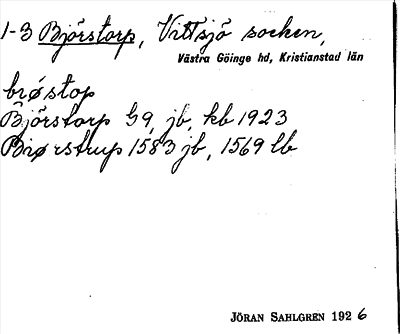 1-3 Björstorp, Vittsjö socken,
Västra Göinge hd, Kristianstad län
brøstop
Björstorp G9, jb, kb 1923
Biørstrup 1583 jb, 1569 lb
JÖRAN SAHLGREN 1926